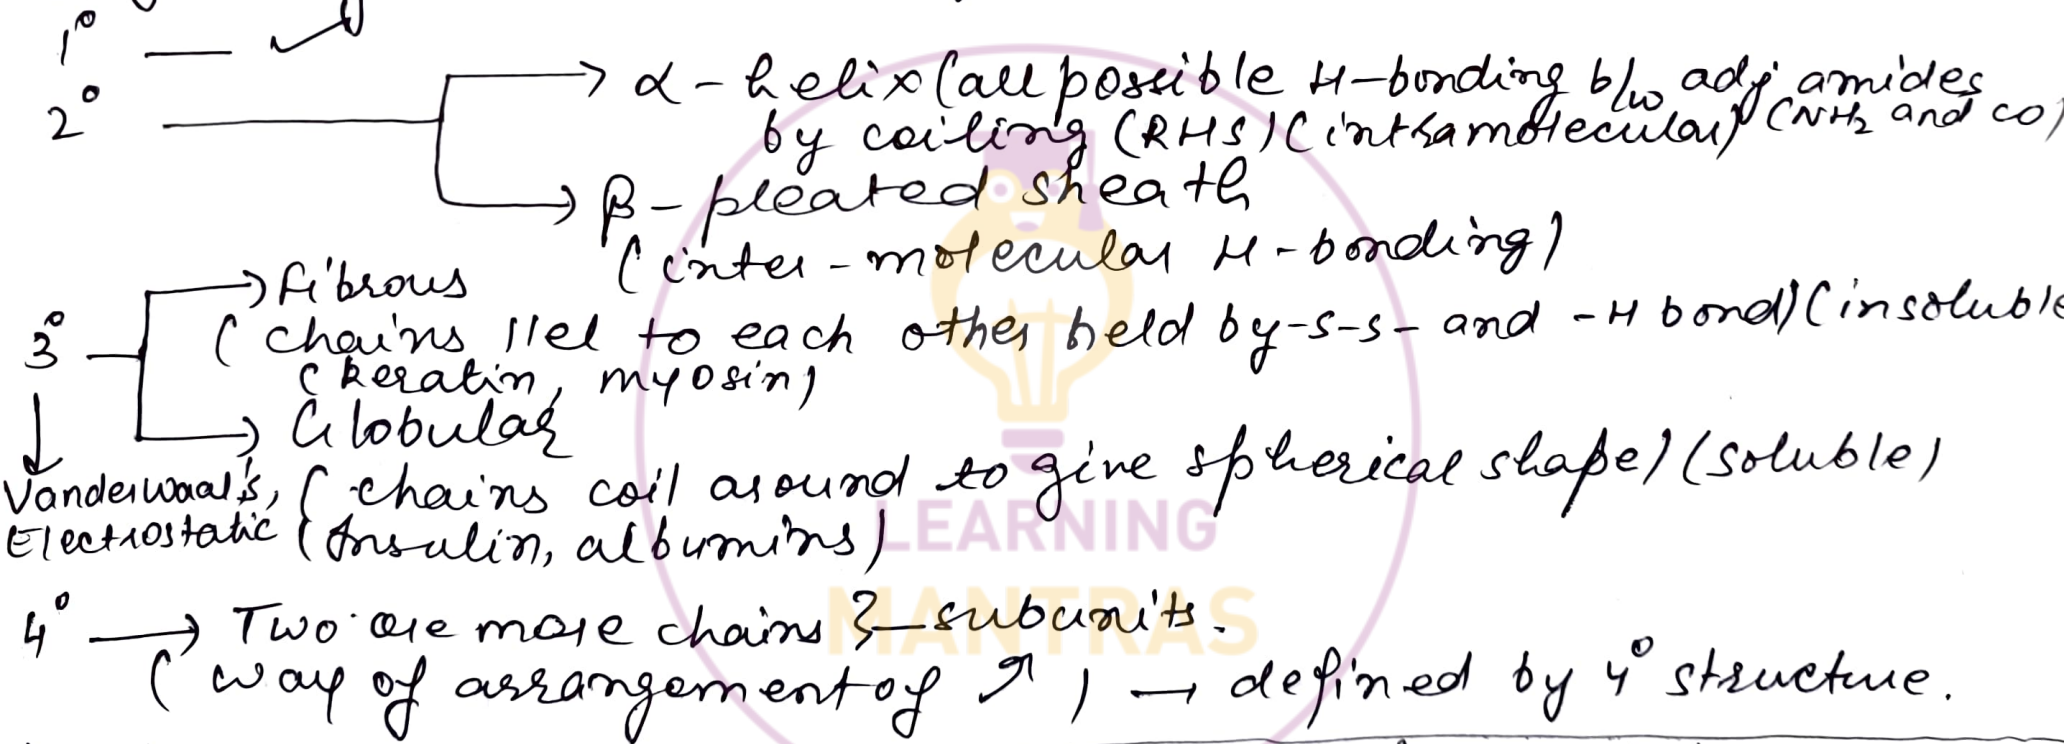 1°
2°
α - helix (all possible H-bonding b/w adj amides
by coiling (RHS) (intramolecular) (NH₂ and CO)
β - pleated sheath
(inter-molecular H-bonding)
3°
Fibrous
(chains llel to each other held by -S-S- and -H bond) (insoluble
(keratin, myosin)
Globular
(chains coil around to give spherical shape) (soluble)
(Insulin, albumins)
Vanderwaal's,
Electrostatic
4° → Two ore more chains }-subunits.
(way of arrangement of ↗) → defined by 4° structure.
LEARNING
MANTRAS